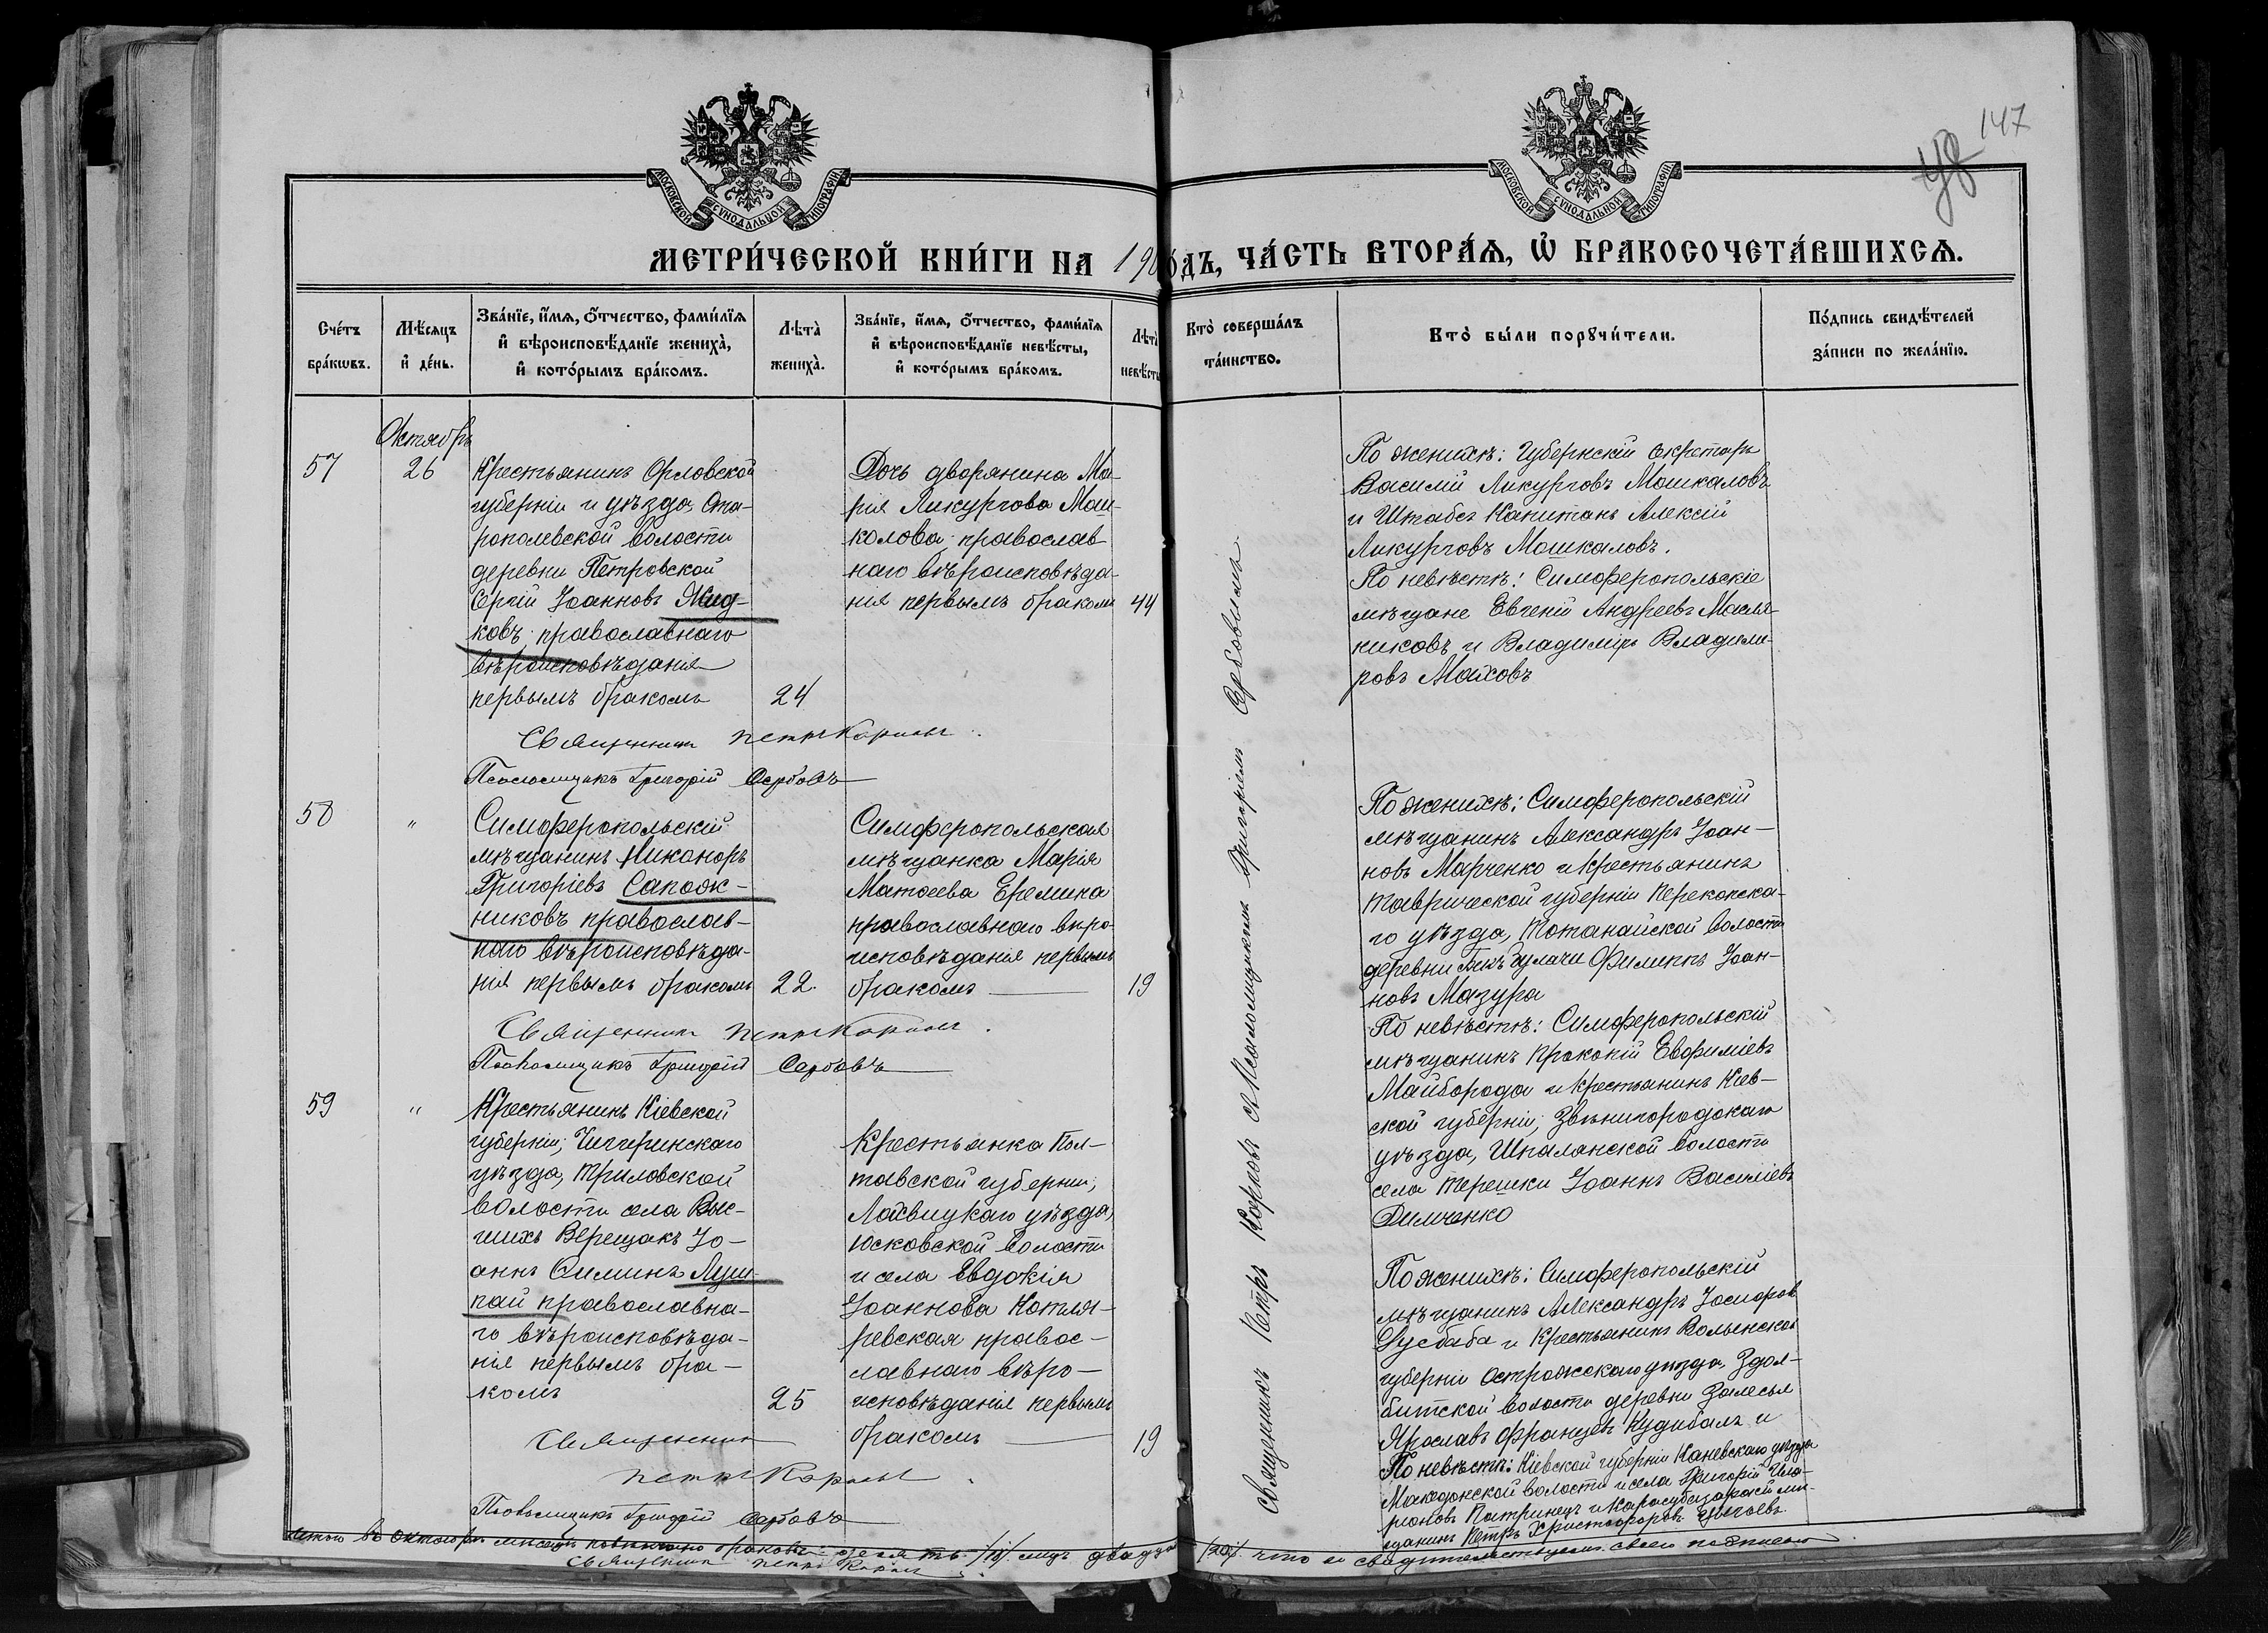 147
МОСКОВСКОЙ СУНОДАЛЬНОЙ ТИПОГРАФІИ
МОСКОВСКОЙ СУНОДАЛЬНОЙ ТИПОГРАФІИ
МЕТРИ́ЧЕСКОЙ КНИ́ГИ НА 190 ОДЪ, ЧА́СТЬ ВТОРА́Я, Ѡ БРАКОСОЧЕТА́ВШИХСЯ.
Сче́тъ бра́кѡвъ.
Мѣ́сяцъ и де́нь.
Зва́нїе, и́мя, ѻ́тчество, фами́лїя
и вѣроисповѣ́данїе жениха̀,
и кото́рымъ бра́комъ.
Лѣта̀ жениха̀.
Зва́нїе, и́мя, ѻ́тчество, фами́лїя
и вѣроисповѣ́данїе невѣ́сты,
и кото́рымъ бра́комъ.
Лѣта̀ невѣ́сты
Кто̀ соверша́лъ та́инство.
Кто̀ бы́ли порꙋчи́тели.
По́дпись свидѣ́телей за́писи по жела́нїю.
Октябрь
57
26
Крестьянинъ Орловской
губерніи и уѣзда, Ста-
рополевской волости
деревни Петровской
Сергій Іоанновъ Жид-
ковъ православнаго
вѣроисповѣданія
первымъ бракомъ
24
Дочь дворянина Ма-
рія Ликургова Маш-
колова православ
наго вѣроисповѣда-
нія первымъ бракомъ
44
По женихѣ: Губернскій секретарь
Василій Ликурговъ Машкаловъ
и Штабсъ Капитанъ Алексій
Ликурговъ Машкаловъ.
По невѣстѣ: Симферопольскіе
мѣщане Евгеній Андреевъ Масля-
никовъ и Владиміръ Владими-
ровъ Маховъ
Священникъ Петръ Карповъ
Псаломщикъ Григорій Сербовъ
58
"
Симферопольскій
мѣщанинъ Никаноръ
Григоріевъ Сапож-
никовъ православ-
наго вѣроисповѣда-
нія первымъ бракомъ
22.
Симферопольская
мѣщанка Марія
Матѳеева Еремина
православнаго вѣро-
исповѣданія первымъ
бракомъ
19
По женихѣ: Симферопольскій
мѣщанинъ Александръ Іоан-
новъ Марченко и крестьянинъ
Таврической губерніи Перекопска-
го уѣзда, Тотанайской волости
деревни Филиппъ Іоан-
новъ Мазура
По невѣстѣ: Симферопольскій
мѣщанинъ Прокопій Евфиміевъ
Майборода и крестьянинъ Кіев-
ской губерніи, Звѣнигородскаго
уѣзда, Шполянской волости
села Терешки Іоаннъ Василіевъ
Димченко
Священникъ Петръ Карповъ
Псаломщикъ Григорій Сербовъ
59
"
Крестьянинъ Кіевской
губерніи, Чигиринскаго
уѣзда, Триловской
волости села Выс-
шихъ Верещакъ Іо-
аннъ Симинъ Луш-
пай православна-
го вѣроисповѣда-
нія первымъ бра-
комъ
25
Крестьянка Пол-
тавской губерніи,
Лохвицкаго уѣзда,
Юсковской волости
и села Евдокія
Іоаннова Котля-
ревская правос-
лавнаго вѣро-
исповѣданія первымъ
бракомъ
19
По женихѣ: Симферопольскій
мѣщанинъ Александръ
и крестьянинъ Волынской
губерніи Острожскаго уѣзда, Здол-
битской волости деревни Залесья
Ярославъ Францевъ и
По невѣстѣ: Кіевской губерніи Каневскаго уѣзда
Македонской волости и села Григорій Ила-
ріоновъ Патринецъ и Карасубазарскій мѣ-
щанинъ Петръ Христофоровъ
Священникъ
Петръ Карповъ
Псаломщикъ Григорій Сербовъ
Священникъ Петръ Карповъ съ Псаломщикомъ Григоріемъ Сербовымъ.
Итого въ октябрѣ мѣсяцѣ повѣнчано браковъ десять /10/ лицъ двадцать /20/. что и свидѣтельствуемъ своею подписью.
Священникъ Петръ Карповъ